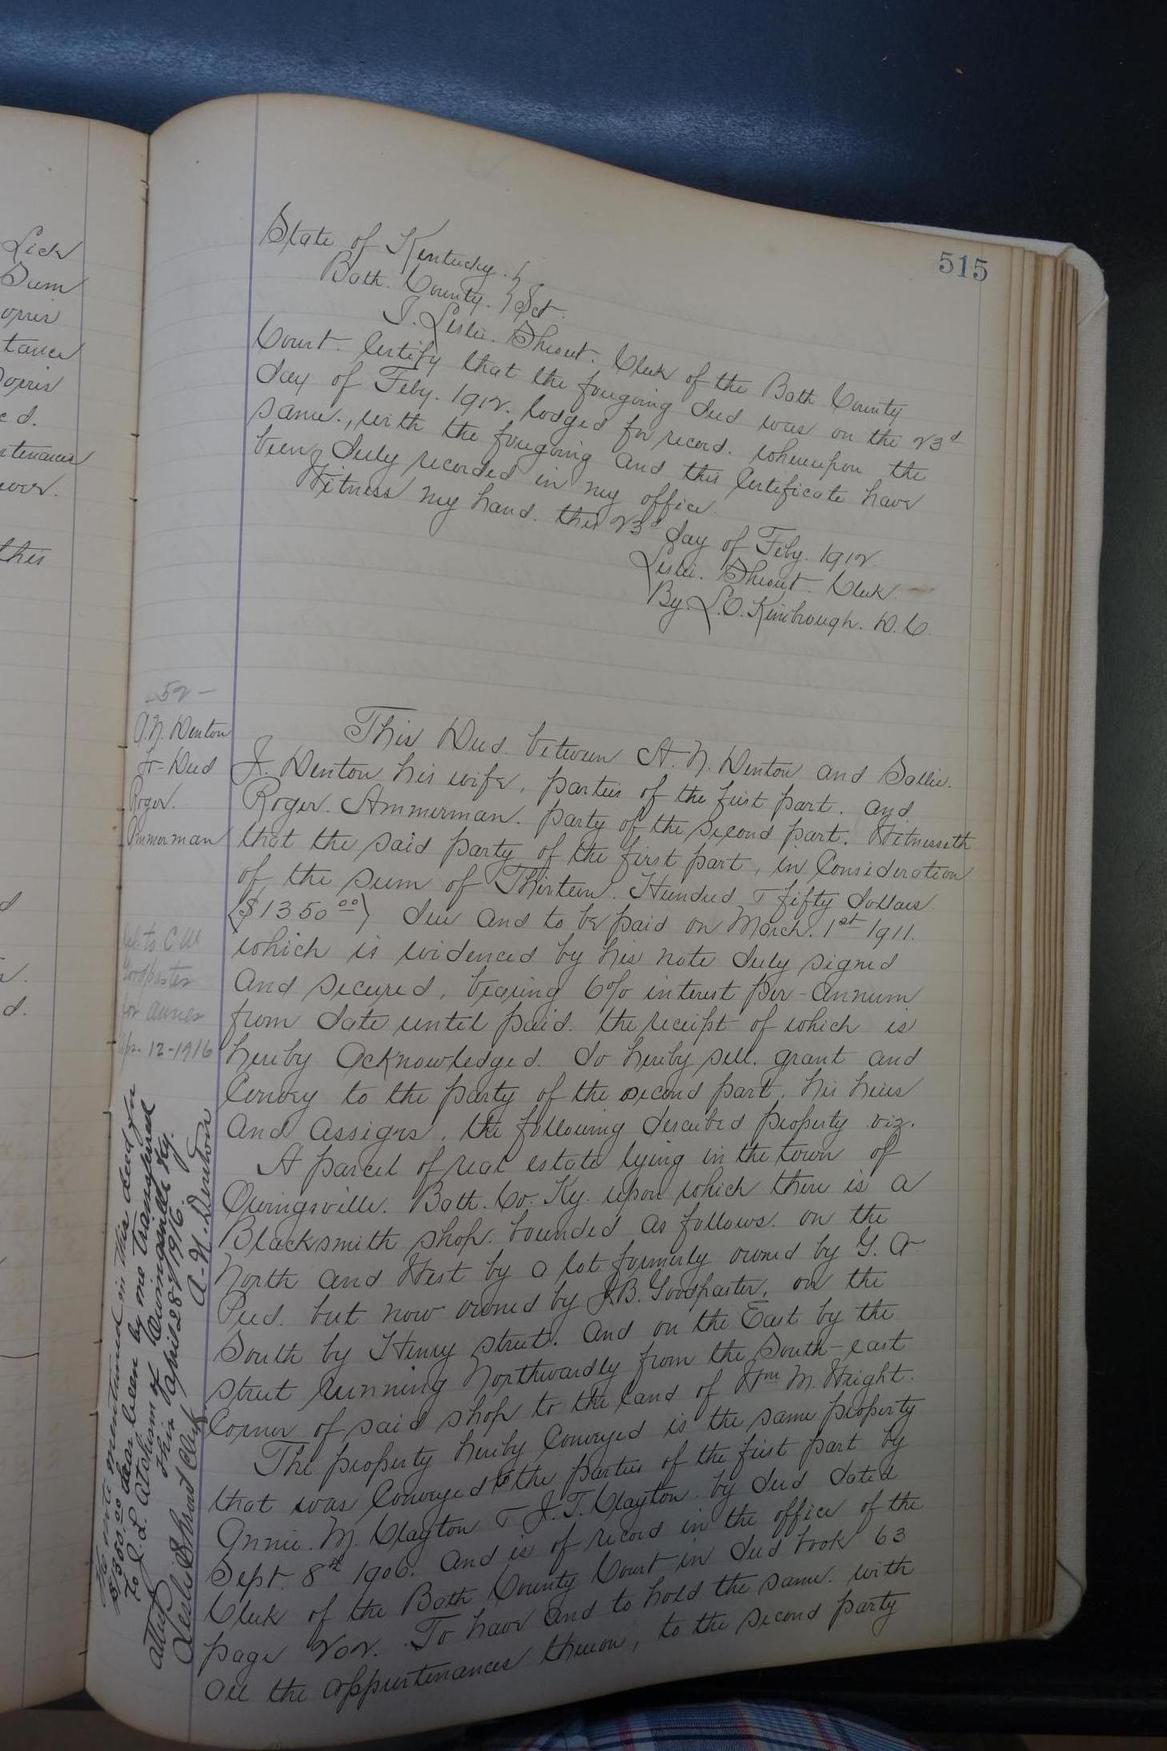 515
State of Kentucky. }
Bath. County. } Sct.
I. Leslie. Shrout. Clerk of the Bath County
Court. Certify that the foregoing deed was on the 23d
day of Feby. 1912. lodged for record. whereupon the
same., with the foregoing and this Certificate have
been duly recorded in my office.
Witness my hand. this 23d day of Feby. 1912
Leslie. Shrout. Clerk
By L.C. Kimbrough. D.C.
52 —
A.N. Denton
Deed
Roger.
Ammerman
This Deed. between A. N. Denton and Sallie.
J. Denton his wife, parties of the first part. and
Roger. Ammerman. party of the second part. Witnesseth
that the said party of the first part, in Consideration
of the sum of Thirteen. Hundred & fifty dollars
($1350 00) due and to be paid on March. 1st 1911.
which is evidenced by his note duly signed
and secured, bearing 6% interest per-annum
from date until paid. the receipt of which is
hereby acknowledged. do hereby sell. grant and
Convey to the party of the second part, his heirs
and assigns, the following described property viz.
A parcel of real estate lying in the town of
Owingsville. Bath. Co. Ky. upon which there is a
Blacksmith shop. bounded as follows. on the
North and West by a lot formerly owned by G. A
Peed. but now owned by J.B. Goodpaster, on the
South by Henry street. and on the East by the
street running Northwardly from the South-east
Corner of said shop to the land of Wm M. Wright.
The property hereby Conveyed is the same property
that was Conveyed to the parties of the first part by
Annie. M. Clayton & J. T. Clayton by deed dated
Sept. 8th 1906. and is of record in the office of the
Clerk of the Bath County Court in deed book 63
page 202. To have and to hold the same. with
all the appurtenances thereon, to the second party
to C W
Goodpaster
for
Apr. 12-1916
The note mentioned in this deed for
$300.00 has been by me transferred
to J. L. Atchison of Owingsville Ky.
This April 28, 1916.
A. N. Denton
Attest
Leslie Shrout Clerk
Lick
tance
ed.
this